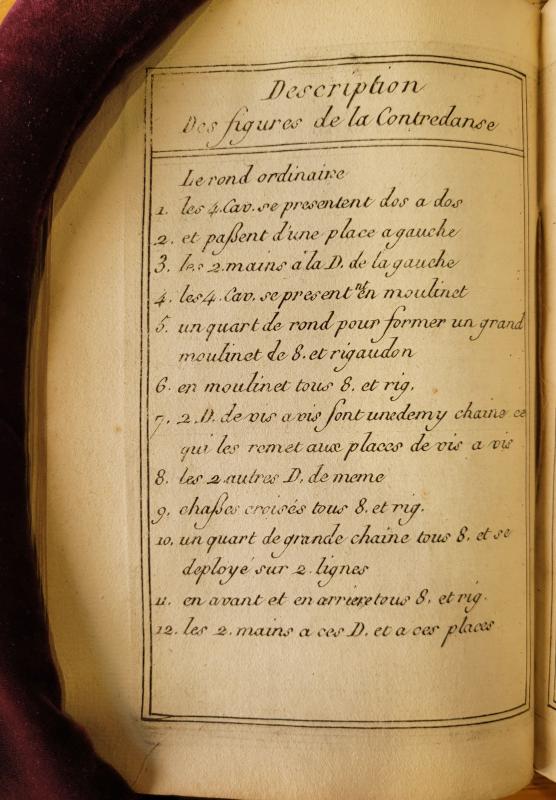 Description
Des figures de la Contredanse
Le rond ordinaire
1. les 4. Cav. se presentent dos a dos
2. et paßent d'une place a gauche
3. les 2. mains à la D. de la gauche
4. les 4. Cav. se present.nt en moulinet
5. un quart de rond pour former un grand
moulinet de 8. et rigaudon
6. en moulinet tous 8. et rig.
7. 2. D. de vis a vis font une demy chaine ce
qui les remet aux places de vis a vis
8. les 2 autres D. de meme
9. chaßes croisés tous 8. et rig.
10. un quart de grande chaine tous 8. et se
deployé sur 2. lignes
11. en avant et en arriere tous 8. et rig.
12. les 2. mains a ces D. et a ces places